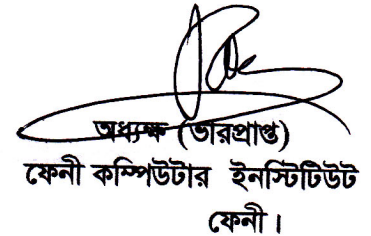 অধ্যক্ষ (ভারপ্রাপ্ত)
ফেনী কম্পিউটার ইনস্টিটিউট
ফেনী।